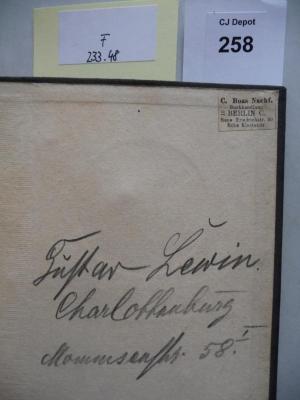 F
233.48
CJ Depot
258
C. Boas Nachf.
Buchhandlung
BERLIN C.
Neue Friedrichstr. 69
Ecke Klosterstr.
Gustav Lewin.
Charlottenburg
Mommsenstr. 58.I